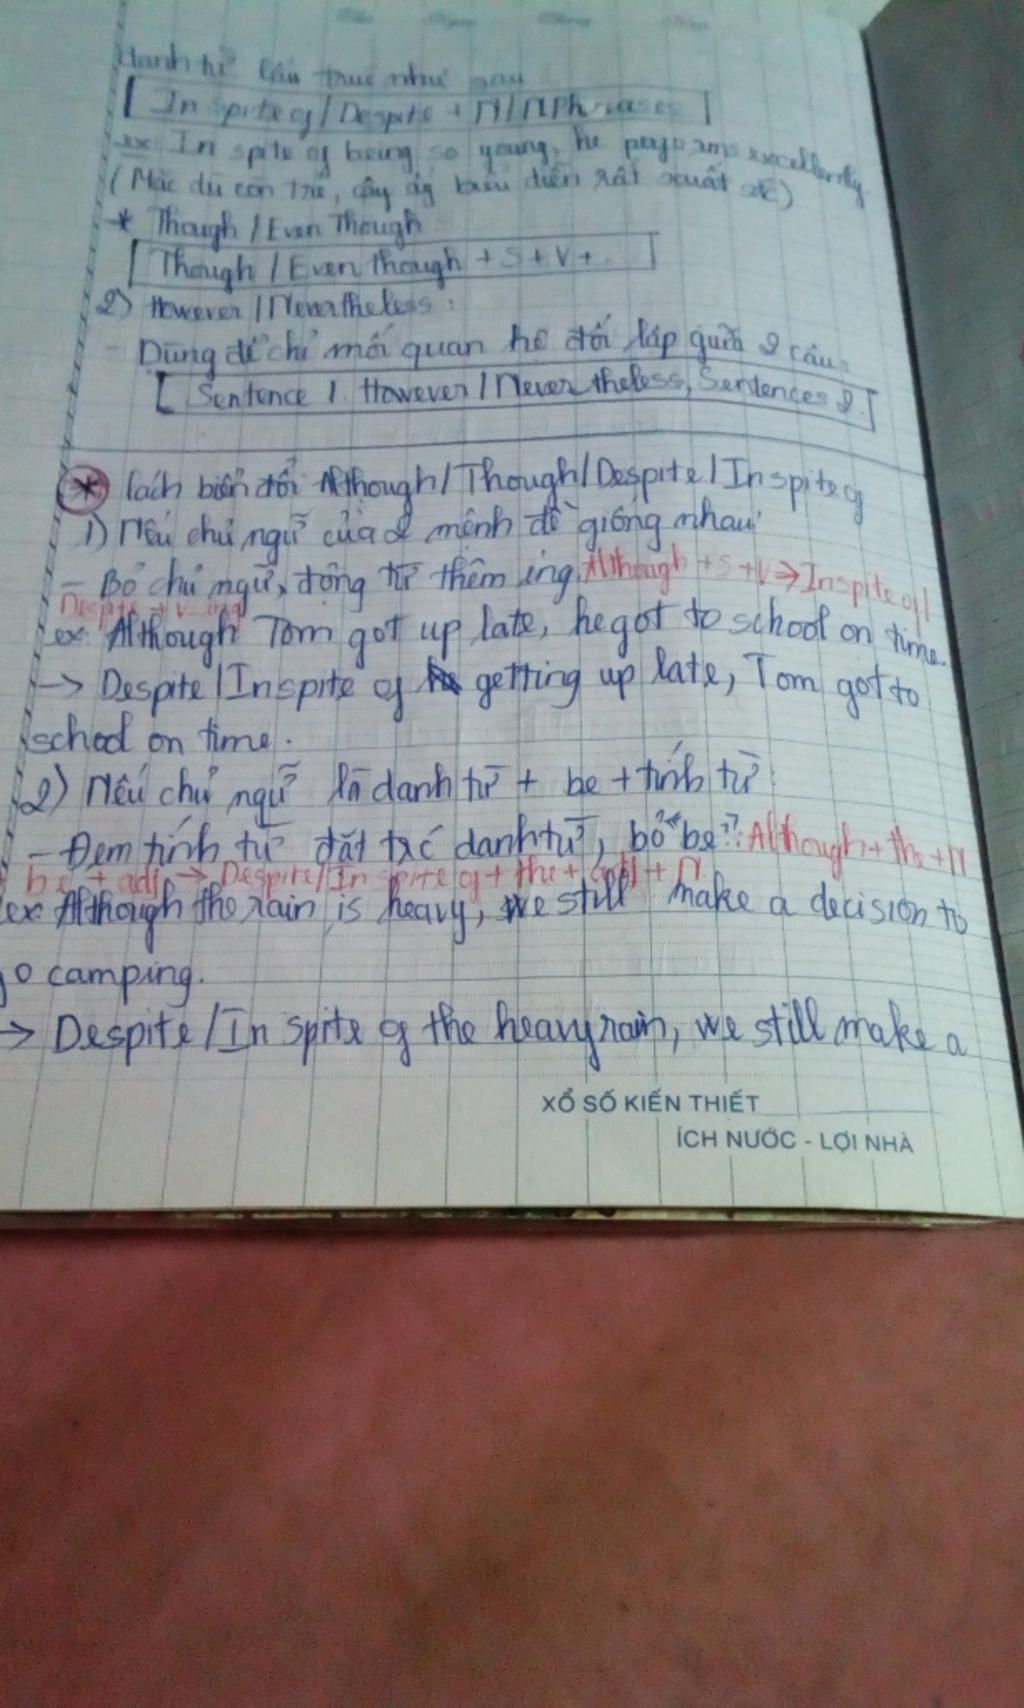 cấu trúc như sau
[ In spite of / Despite + N / N Phrases ]
ex: In spite of being so young, he performs excellently.
(Mặc dù còn trẻ, cậu ấy biểu diễn rất xuất sắc)
* Though / Even Though
[ Though / Even though + S + V + ]
2) However / Nevertheless :
- Dùng để chỉ mối quan hệ đối lập giữa 2 câu.
[ Sentence 1. However / Nevertheless, Sentences 2. ]
* Cách biến đổi Although / Though / Despite / In spite of
1) Nếu chủ ngữ của 2 mệnh đề giống nhau:
- Bỏ chủ ngữ, động từ thêm ing. Although + S + V → In spite of /
Despite + V-ing
ex: Although Tom got up late, he got to school on time.
→ Despite / In spite of getting up late, Tom got to
school on time.
2) Nếu chủ ngữ là danh từ + be + tính từ:
- Đem tính từ đặt trc danh từ, bỏ "be": Although + the + N
be + adj → Despite / In spite of + the + adj + N
ex: Although the rain is heavy, we still make a decision to
go camping.
→ Despite / In spite of the heavy rain, we still make a
XỔ SỐ KIẾN THIẾT
ÍCH NƯỚC - LỢI NHÀ